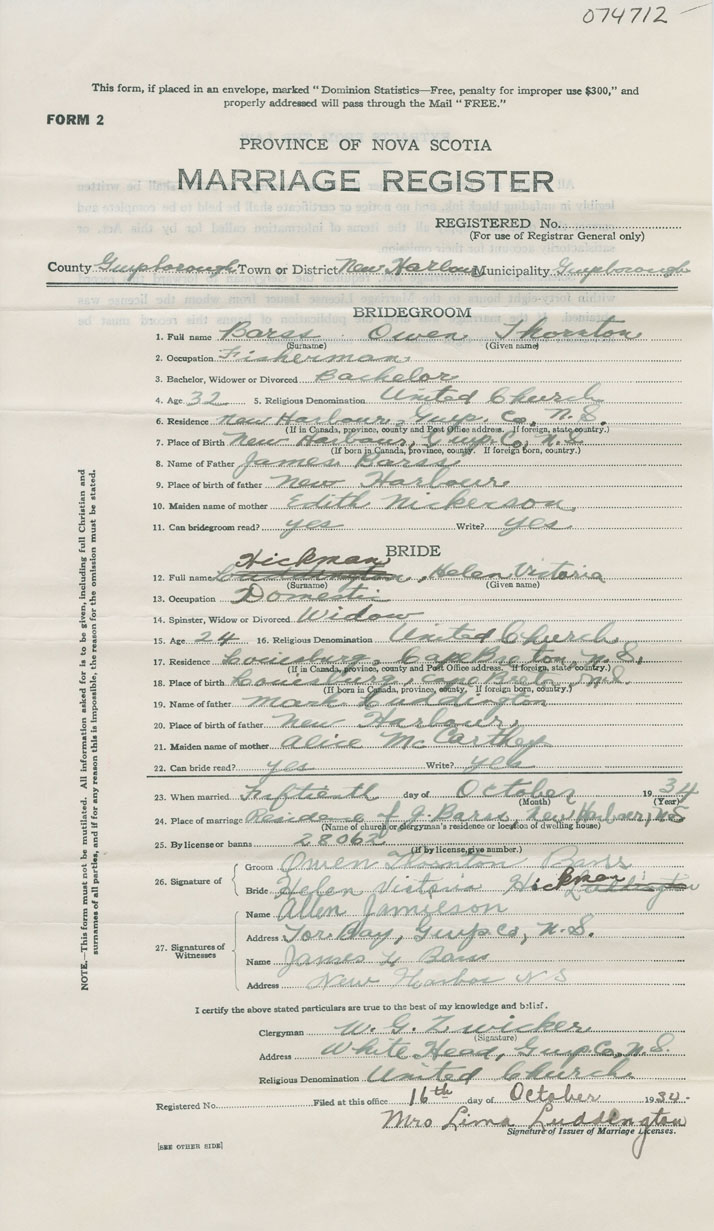 074712
This form, if placed in an envelope, marked "Dominion Statistics—Free, penalty for improper use $300," and
properly addressed will pass through the Mail "FREE."
FORM 2
PROVINCE OF NOVA SCOTIA
MARRIAGE REGISTER
REGISTERED No.
(For use of Registrar General only)
County Guysborough Town or District New Harbour Municipality Guysborough
BRIDEGROOM
1. Full name Barss Owen Thornton
(Surname) (Given name)
2. Occupation Fisherman
3. Bachelor, Widower or Divorced Bachelor
4. Age 32 5. Religious Denomination United Church
6. Residence New Harbour, Guys. Co, N.S.
(If in Canada, province, county and Post Office address. If foreign, state country.)
7. Place of Birth New Harbour, Guys. Co, N.S.
(If born in Canada, province, county. If foreign born, country.)
8. Name of Father James Barss
9. Place of birth of father New Harbour
10. Maiden name of mother Edith Nickerson
11. Can bridegroom read? yes Write? yes
BRIDE
Hickman
12. Full name Luddington, Helen Victoria
(Surname) (Given name)
13. Occupation Domestic
14. Spinster, Widow or Divorced Widow
15. Age 24 16. Religious Denomination United Church
17. Residence Louisburg, Cape Breton N.S.
(If in Canada, province, county and Post Office address. If foreign, state country.)
18. Place of birth Louisburg, Cape Breton, N.S.
(If born in Canada, province, county, If foreign born, country.)
19. Name of father Mark Luddington
20. Place of birth of father New Harbour,
21. Maiden name of mother Alice McCarthy
22. Can bride read? yes Write? yes
23. When married Fiftienth day of October 1934
(Month) (Year)
24. Place of marriage Residence of J. Barss, New Harbour, N.S
(Name of church or clergyman's residence or location of dwelling house)
25. By license or banns 28062
(If by license, give number.)
26. Signature of
Groom Owen Thornton Barss
Bride Helen Victoria Hickman Luddington
27. Signatures of Witnesses
Name Allen Jamieson
Address Tor Bay, Guys Co, N.S.
Name James Barss
Address New Harbor N S
I certify the above stated particulars are true to the best of my knowledge and belief.
Clergyman W. G. Zwicker
(Signature)
Address White Head, Guys Co. N.S.
Religious Denomination United Church
Registered No. Filed at this office 16th day of October 1934.
Mrs Lima Luddington
Signature of Issuer of Marriage Licenses.
[SEE OTHER SIDE]
NOTE.—This form must not be mutilated. All information asked for is to be given, including full Christian and
surnames of all parties, and if for any reason this is impossible, the reason for the omission must be stated.